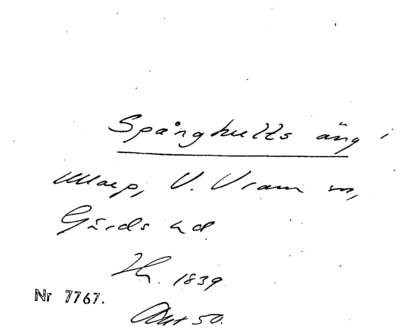 Spånghults äng i
Maep, V. Vram sn,
Gärds hd.
H. 1839
Nr 7767.
Akt 50.